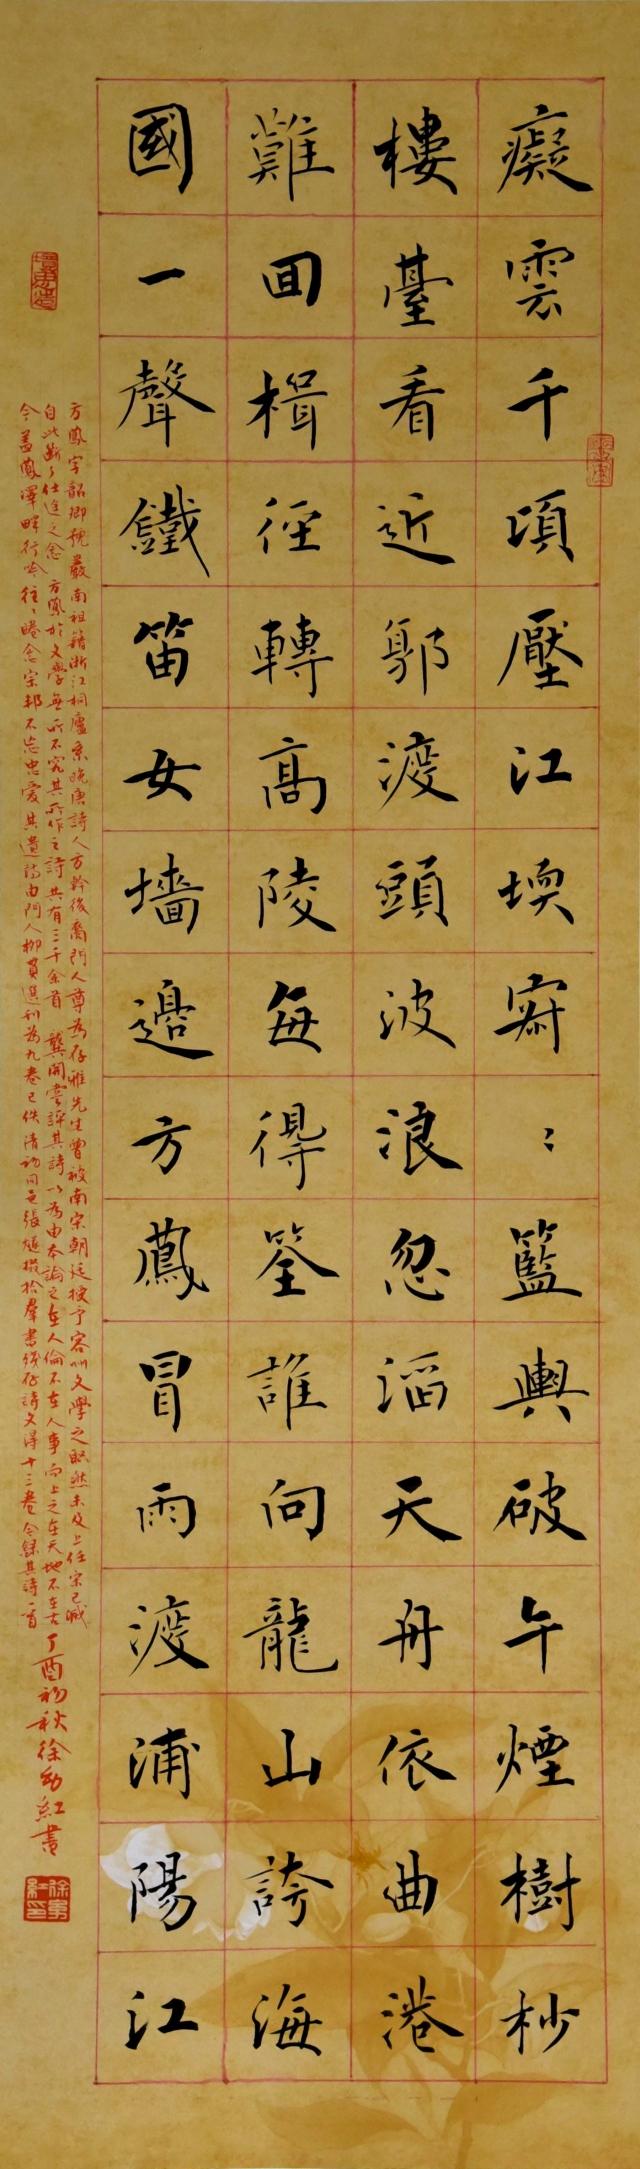 癡雲千頃壓江堧寂〻籃輿破午煙樹杪
樓臺看近郭渡頭波浪忽滔天舟依曲港
難回楫徑轉高陵每得筌誰向龍山誇海
國一聲鐵笛女墻邊方鳳冒雨渡浦陽江
方鳳字韶卿號巖南祖籍浙江桐廬系晚唐詩人方幹後裔門人尊為存雅先生曾被南宋朝廷授予容州文學之職然未及上任宋已滅
自此斷了仕途之念方鳳於文學無所不究其所作之詩共有三千余首龔開嘗評其詩以為由本論之在人倫不在人事向上之在天地不在古
今蓋鳳澤畔行吟往〻睠念宗邦不忘忠愛其遺詩由門人柳貫選刊為九卷已佚清初同邑張燧摭拾群書殘存詩文得十三卷今錄其詩一首丁酉初秋徐幼紅書